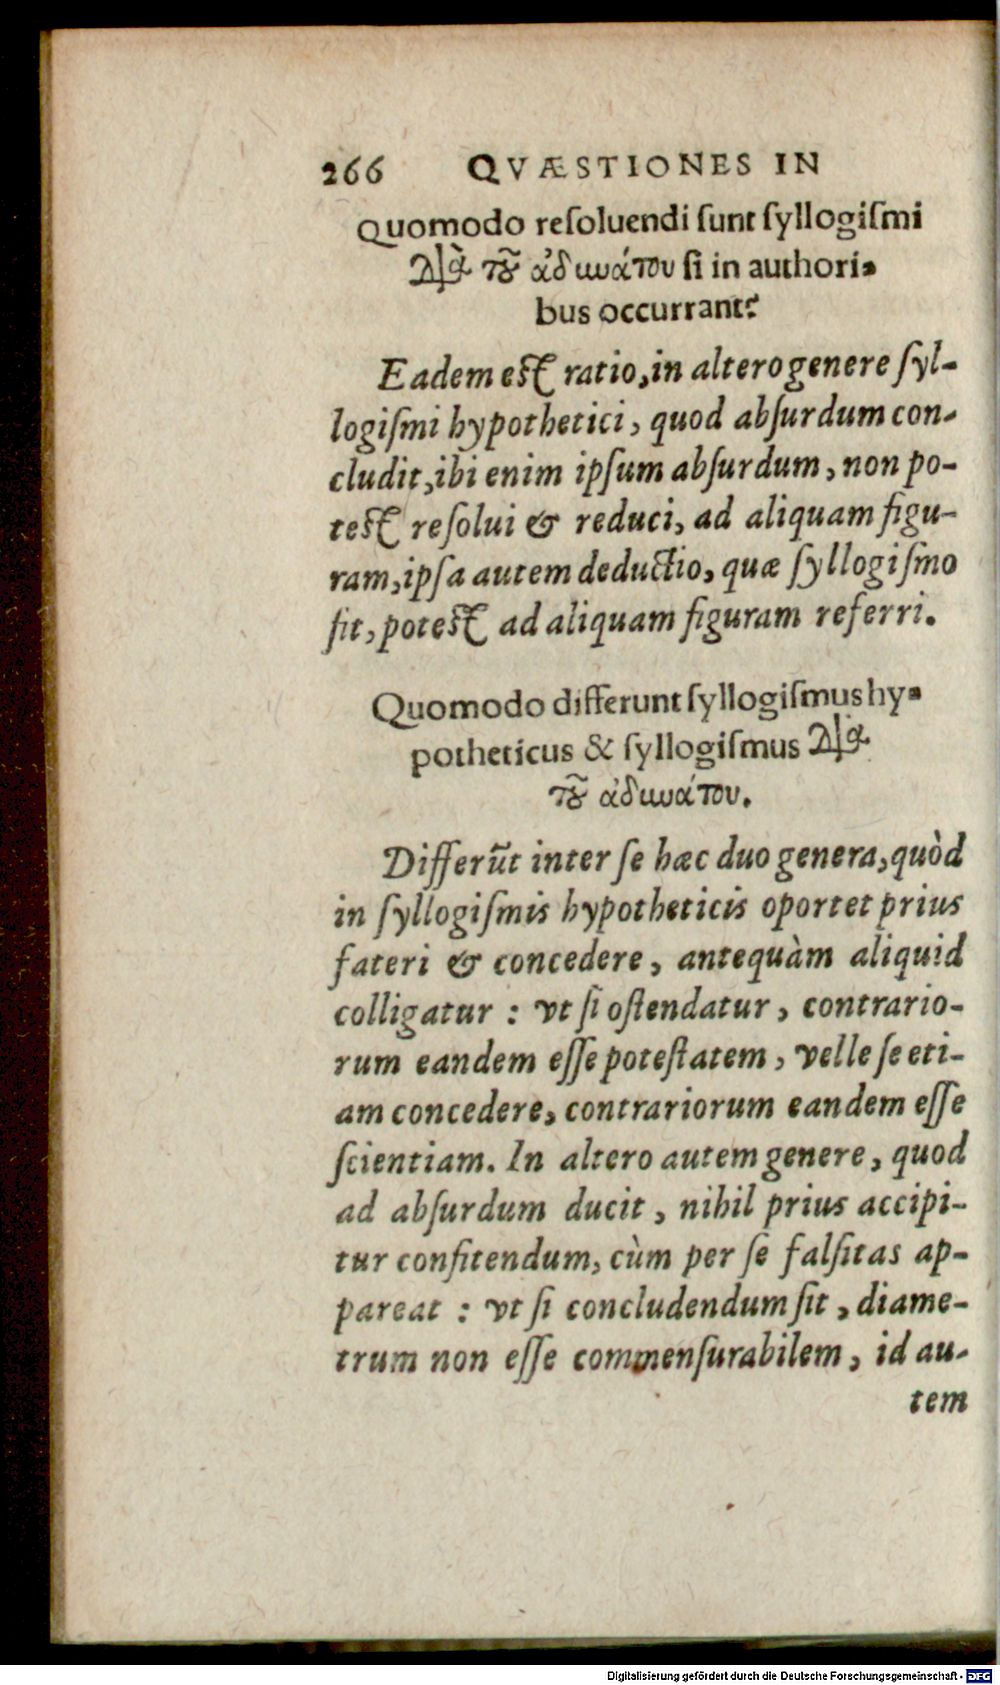 266 QVÆSTIONES IN
Quomodo reſoluendi ſunt ſyllogiſmi
διὰ τοῦ ἀδυνάτου ſi in authori-
bus occurrant?
Eadem eſt ratio, in altero genere ſyl-
logiſmi hypothetici, quod abſurdum con-
cludit, ibi enim ipſum abſurdum, non po-
teſt reſolui & reduci, ad aliquam figu-
ram, ipſa autem deductio, quæ ſyllogiſmo
fit, poteſt ad aliquam figuram referri.
Quomodo differunt ſyllogiſmus hy-
potheticus & ſyllogiſmus διὰ
τοῦ ἀδυνάτου.
Differũt inter ſe hæc duo genera, quòd
in ſyllogiſmis hypotheticis oportet prius
fateri & concedere, antequàm aliquid
colligatur : vt ſi oſtendatur, contrario-
rum eandem eſſe poteſtatem, velle ſe eti-
am concedere, contrariorum eandem eſſe
ſcientiam. In altero autem genere, quod
ad abſurdum ducit, nihil prius accipi-
tur confitendum, cùm per ſe falſitas ap-
pareat : vt ſi concludendum ſit, diame-
trum non eſſe commenſurabilem, id au-
tem
Digitalisierung gefördert durch die Deutsche Forschungsgemeinschaft - DFG